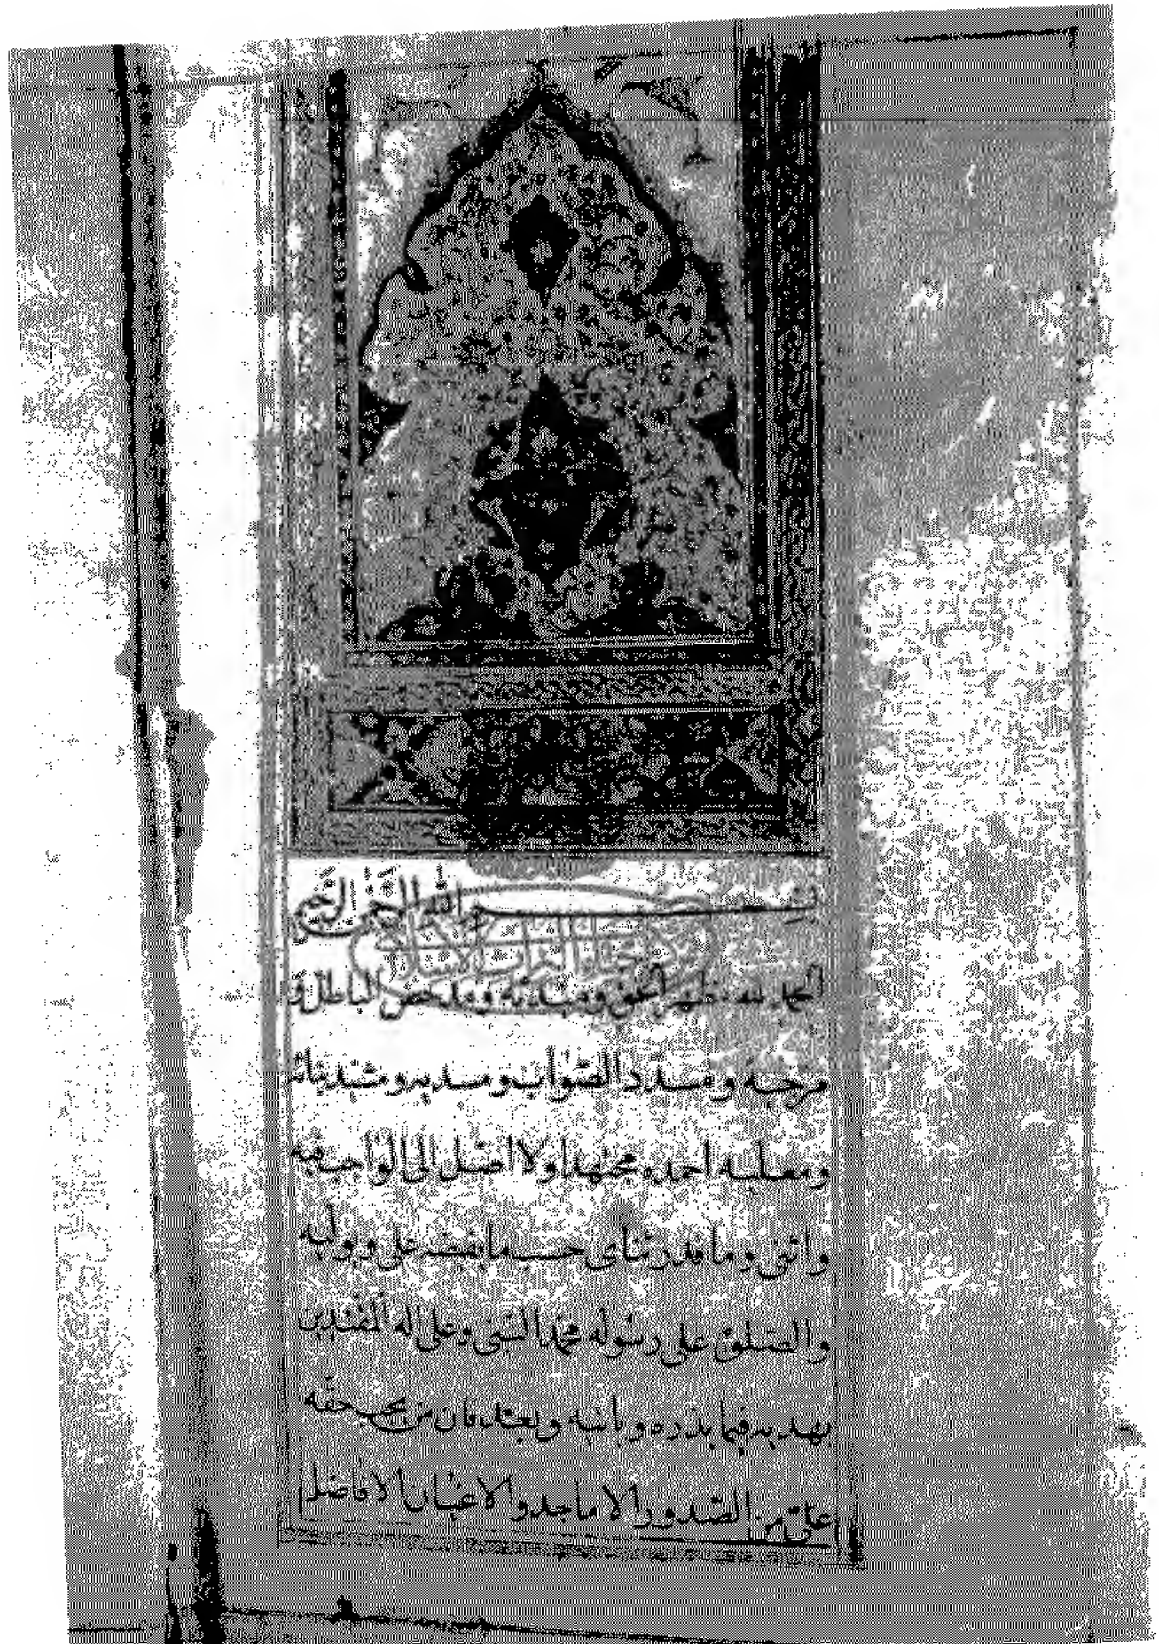 بسم الله الرحمن الرحيم
الحمد لله مظهر الحق ومبديه ومدحض الباطل و
ومسدد الصواب ومسديه ومشيد
ومعليه احمده مجتهدا ولا اصل الى الواجب فيه
واثني وما قدر ثنائي حسب ما يفيضه علي ويوليه
والصلوة على رسوله محمد النبي وعلى اله المقتدين
بهديه فيما يذره ويأتيه وبعد فان من يجب حقه
علي من الصدور الاماجد والاعيان الافاضل